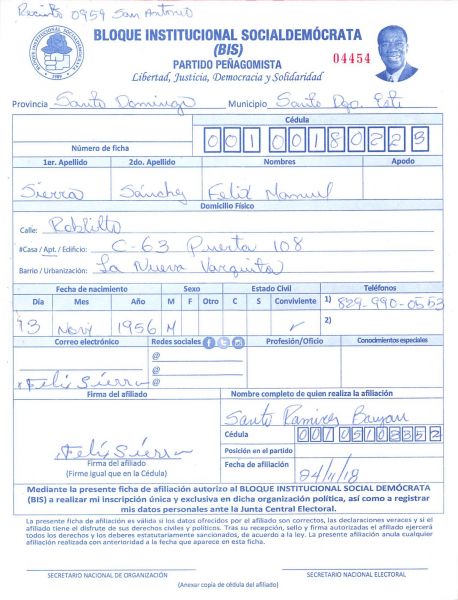 Recinto 0959 San Antonio
BLOQUE INSTITUCIONAL SOCIALDEMÓCRATA
(BIS)
PARTIDO PEÑAGOMISTA
Libertad, Justicia, Democracia y Solidaridad
04454
Provincia Santo Domingo Municipio Santo Dgo. Este
Número de ficha
Cédula
1er. Apellido 2do. Apellido Nombres Apodo
Sierra Sánchez Felix Manuel
Domicilio Físico
Calle:
#Casa / Apt. / Edificio: C-63 Puerta 108
Barrio / Urbanización: La Nueva
Fecha de nacimiento Sexo Estado Civil Teléfonos
Día Mes Año M F Otro C S Conviviente 1) 829-990-0553
13 Nov 1956 M ✓ 2)
Correo electrónico Redes sociales Profesión/Oficio Conocimientos especiales
@
@
x Felix Sierra @
Firma del afiliado Nombre completo de quien realiza la afiliación
Santo Ramirez
Cédula
Posición en el partido
Felix Sierra
Firma del afiliado
(Firme igual que en la Cédula)
Fecha de afiliación 24/11/18
Mediante la presente ficha de afiliación autorizo al BLOQUE INSTITUCIONAL SOCIAL DEMÓCRATA
(BIS) a realizar mi inscripción única y exclusiva en dicha organización política, así como a registrar
mis datos personales ante la Junta Central Electoral.
La presente ficha de afiliación es válida si los datos ofrecidos por el afiliado son correctos, las declaraciones veraces y si el
afiliado tiene el disfrute de sus derechos civiles y políticos. Tras su recepción, sello y firma autorizadas el afiliado ejercerá
todos los derechos y los deberes estatutariamente sancionados, de acuerdo a la ley. La presente afiliación anula cualquier
afiliación realizada con anterioridad a la fecha que aparece en esta ficha.
SECRETARIO NACIONAL DE ORGANIZACIÓN SECRETARIO NACIONAL ELECTORAL
(Anexar copia de cédula del afiliado)